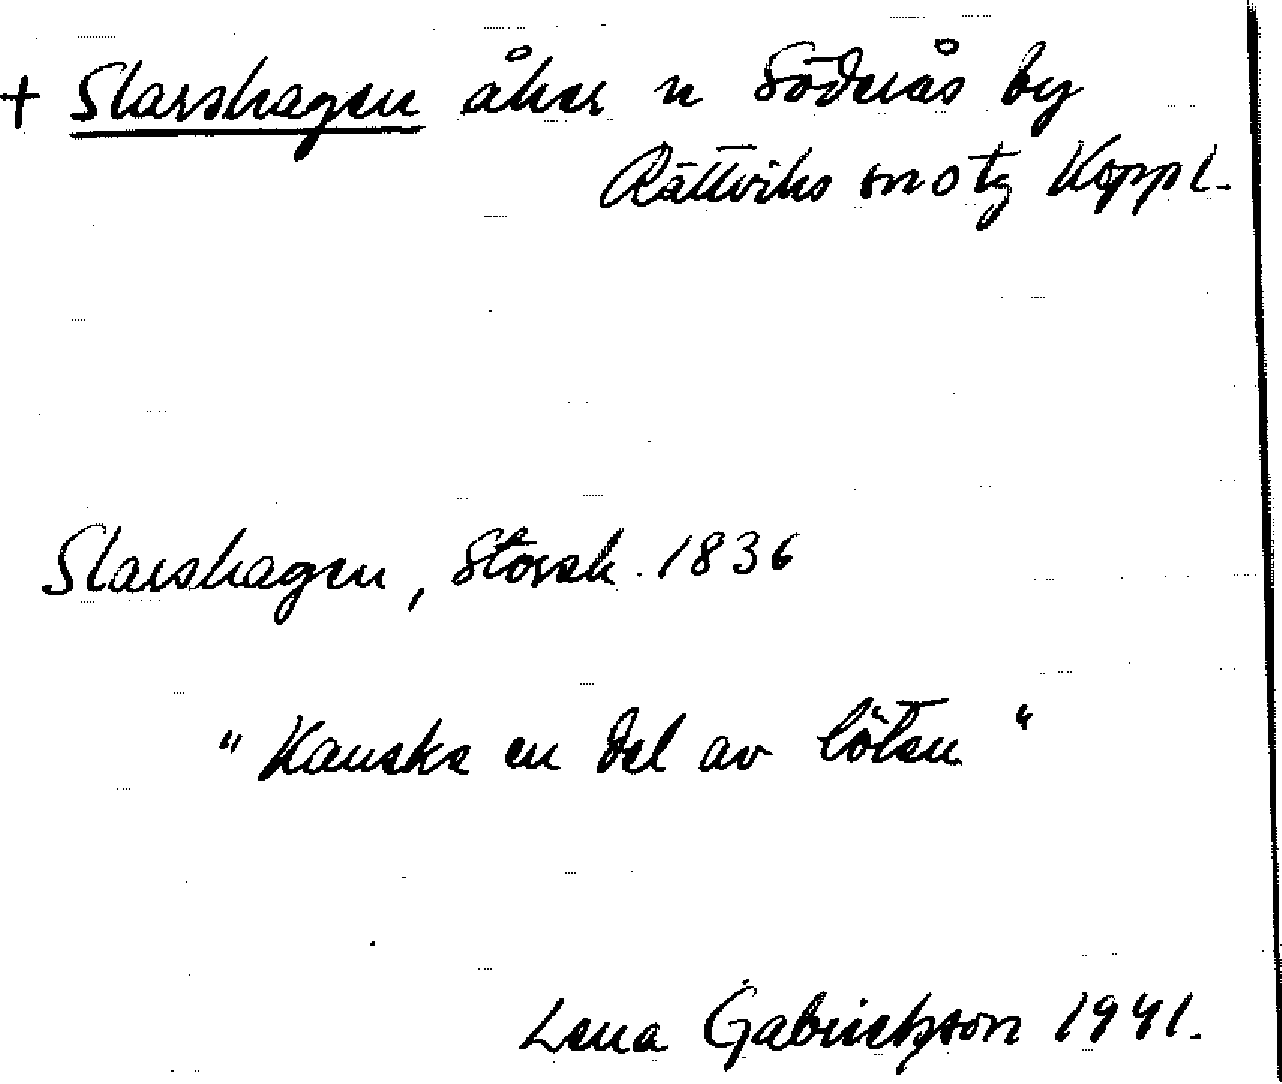 + Slarshagen åker n Söderås by
Rättviks sn o tg Koppl.
Slarshagen, Storsk. 1836
"Kanske en del av löten"
Lena Gabrielsson 1941.